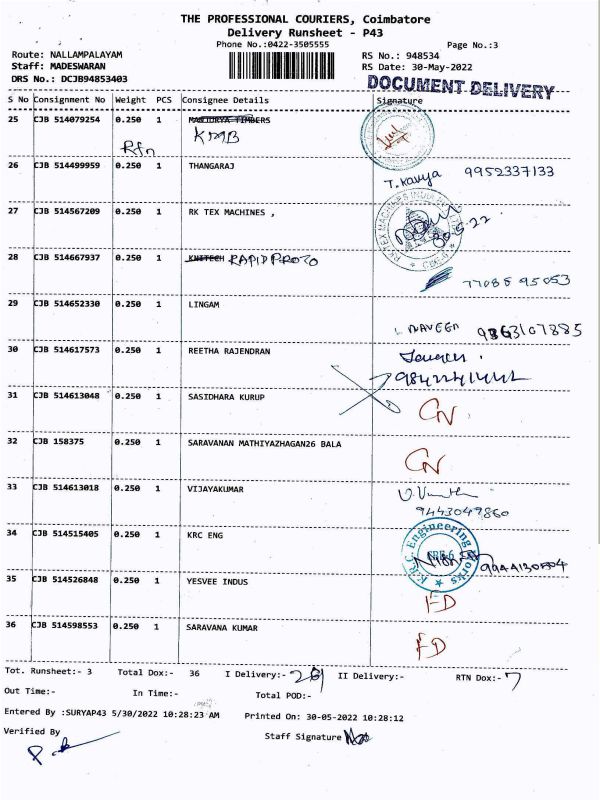 THE PROFESSIONAL COURIERS, Coimbatore
Delivery Runsheet - P43
Phone No.:0422-3505555
Page No.:3
Route: NALLAMPALAYAM
RS No.: 948534
Staff: MADESWARAN
RS Date: 30-May-2022
DRS No.: DCJB94853403
DOCUMENT DELIVERY
S No Consignment No Weight PCS Consignee Details Signature
25 CJB 514079254 0.250 1 TIMBERS
KMB
26 CJB 514499959 0.250 1 THANGARAJ
T. Kavya 9952337133
27 CJB 514567209 0.250 1 RK TEX MACHINES ,
30-5-22
28 CJB 514667937 0.250 1 KNITECH RAPID PROTO
77085 95053
29 CJB 514652330 0.250 1 LINGAM
NAVEEN 9363107885
30 CJB 514617573 0.250 1 REETHA RAJENDRAN
31 CJB 514613048 0.250 1 SASIDHARA KURUP
CN
32 CJB 158375 0.250 1 SARAVANAN MATHIYAZHAGAN26 BALA
CN
33 CJB 514613018 0.250 1 VIJAYAKUMAR
9443049860
34 CJB 514515405 0.250 1 KRC ENG
K.R.C. Engineering Works
CBE-6
9944130504
35 CJB 514526848 0.250 1 YESVEE INDUS
ED
36 CJB 514598553 0.250 1 SARAVANA KUMAR
ED
Tot. Runsheet:- 3 Total Dox:- 36 I Delivery:- II Delivery:- RTN Dox:- 7
Out Time:- In Time:- Total POD:-
Entered By :SURYAP43 5/30/2022 10:28:23 AM Printed On: 30-05-2022 10:28:12
Verified By
Staff Signature